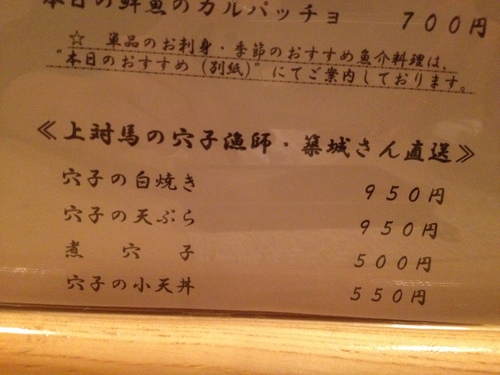 本日の鮮魚のカルパッチョ 700円
☆ 単品のお刺身・季節のおすすめ魚介料理は、
"本日のおすすめ（別紙）"にてご案内しております。
≪上対馬の穴子漁師・築城さん直送≫
穴子の白焼き 950円
穴子の天ぷら 950円
煮穴子 500円
穴子の小天丼 550円